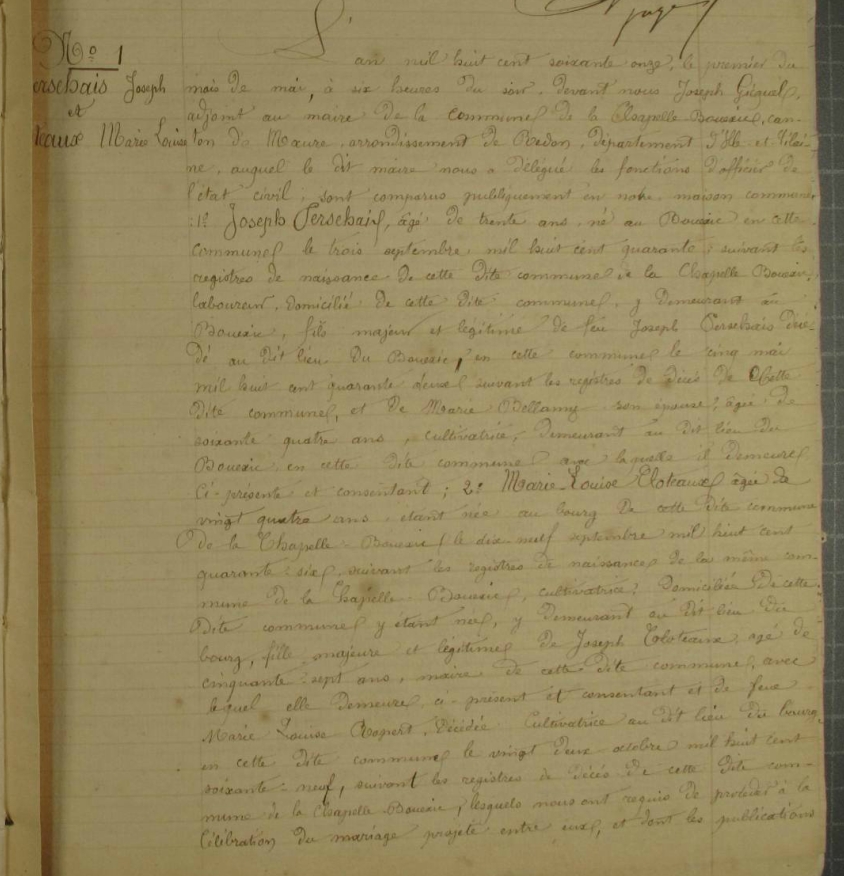 N° 1
Persehais Joseph
et
Marie Louise
L'an mil huit cent soixante onze, le premier du
mois de mai, à six heures du soir, devant nous Joseph
adjoint au maire de la commune de la Chapelle Bouexic, can-
ton de Maure, arrondissement de Redon, département d'Ille et Vilai-
ne, auquel le dit maire nous a délégué les fonctions d'officier de
l'état civil, sont comparus publiquement en notre maison commune
: 1° Joseph Persehais, âgé de trente ans, né au Bouexic en cette
commune le trois septembre mil huit cent quarante, suivant les
registres de naissance de cette dite commune de la Chapelle Bouexic,
laboureur, domicilié de cette dite commune, y demeurant au
Bouexic, fils majeur et légitime de feu Joseph Persehais décé-
dé au dit lieu du Bouexic, en cette commune le cinq mai
mil huit cent quarante deux suivant les registres de décès de cette
dite commune, et de Marie Bellamy son épouse, âgée de
soixante quatre ans, cultivatrice, demeurant au dit lieu du
Bouexic en cette dite commune avec laquelle il demeure
ci-présente et consentant ; 2° Marie-Louise Eloteaux âgée de
vingt quatre ans, étant née au bourg de cette dite commune
de la Chapelle-Bouexic le dix-neuf septembre mil huit cent
quarante-six, suivant les registres de naissance de la même com-
mune de la Chapelle-Bouexic, cultivatrice, domiciliée de cette
dite commune y étant née, y demeurant au dit lieu du
bourg, fille majeure et légitime de Joseph Eloteaux, agé de
cinquante-sept ans, maire de cette dite commune, avec
lequel elle demeure, ci-présent et consentant et de feue
Marie Louise Ropert, décédée cultivatrice au dit lieu du bourg,
en cette dite commune le vingt deux octobre mil huit cent
soixante-neuf, suivant les registres de décès de cette dite com-
mune de la Chapelle Bouexic, lesquels nous ont requis de procéder à la
célébration du mariage projeté entre eux, et dont les publications